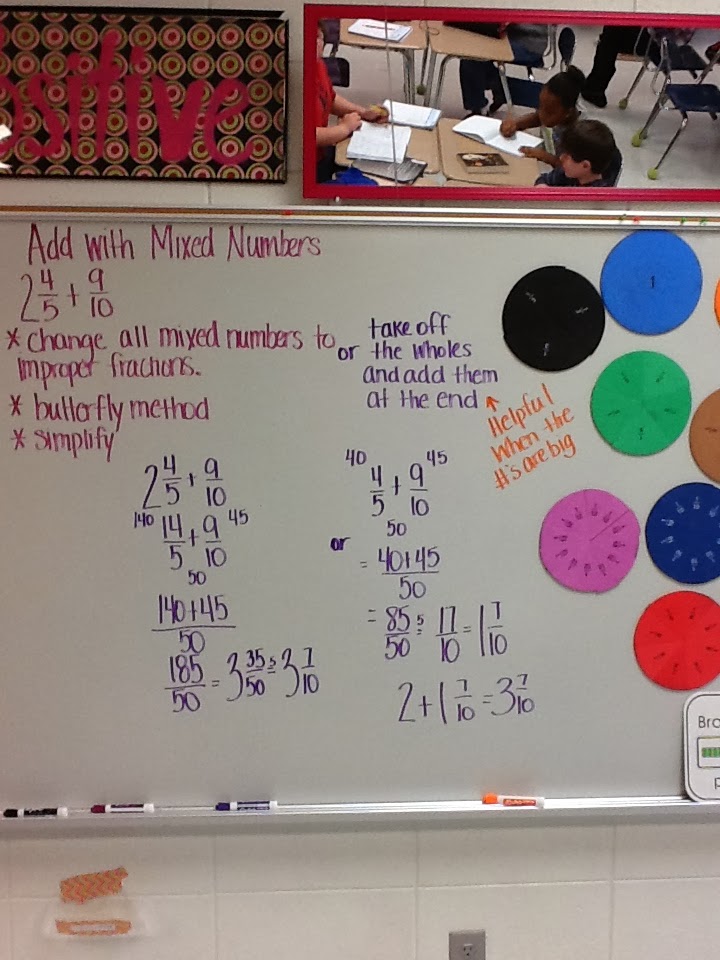 ositive
Add with Mixed Numbers
2 4/5 + 9/10
* change all mixed numbers to
improper fractions.
* butterfly method
* simplify
or
take off
the wholes
and add them
at the end
Helpful
when the
#'s are big
2 4/5 + 9/10
140 14/5 + 9/10 45
50
140+45/50
185/50 = 3 35/50 ÷ 5 = 3 7/10
or
40 4/5 + 9/10 45
50
= 40+45/50
= 85/50 ÷ 5 = 17/10 = 1 7/10
2 + 1 7/10 = 3 7/10
1
Bro